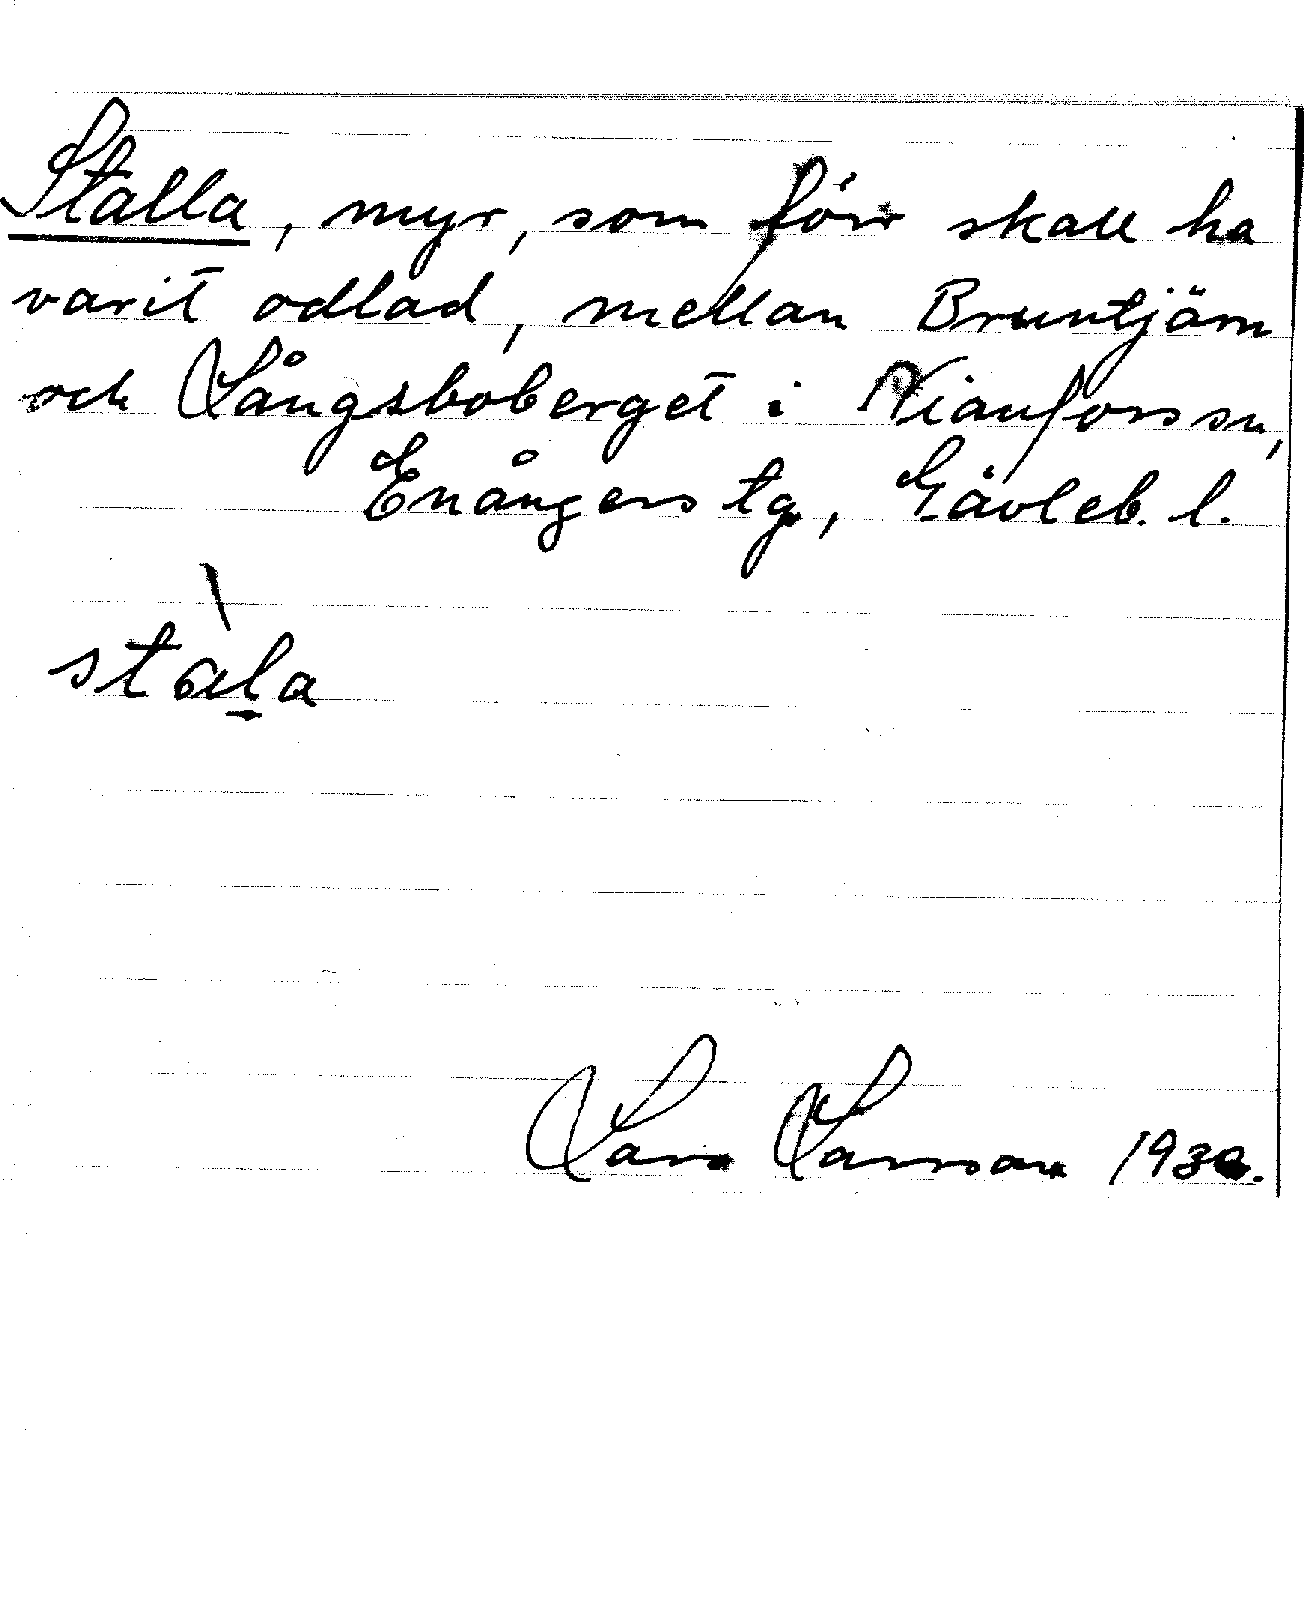 Stalla, myr, som förr skall ha
varit odlad, mellan Bruntjärn
och Långsboberget i Nianfors sn,
Enångers tg, Gävleb. l.
stàl̠a
Lars Larsson 1930.